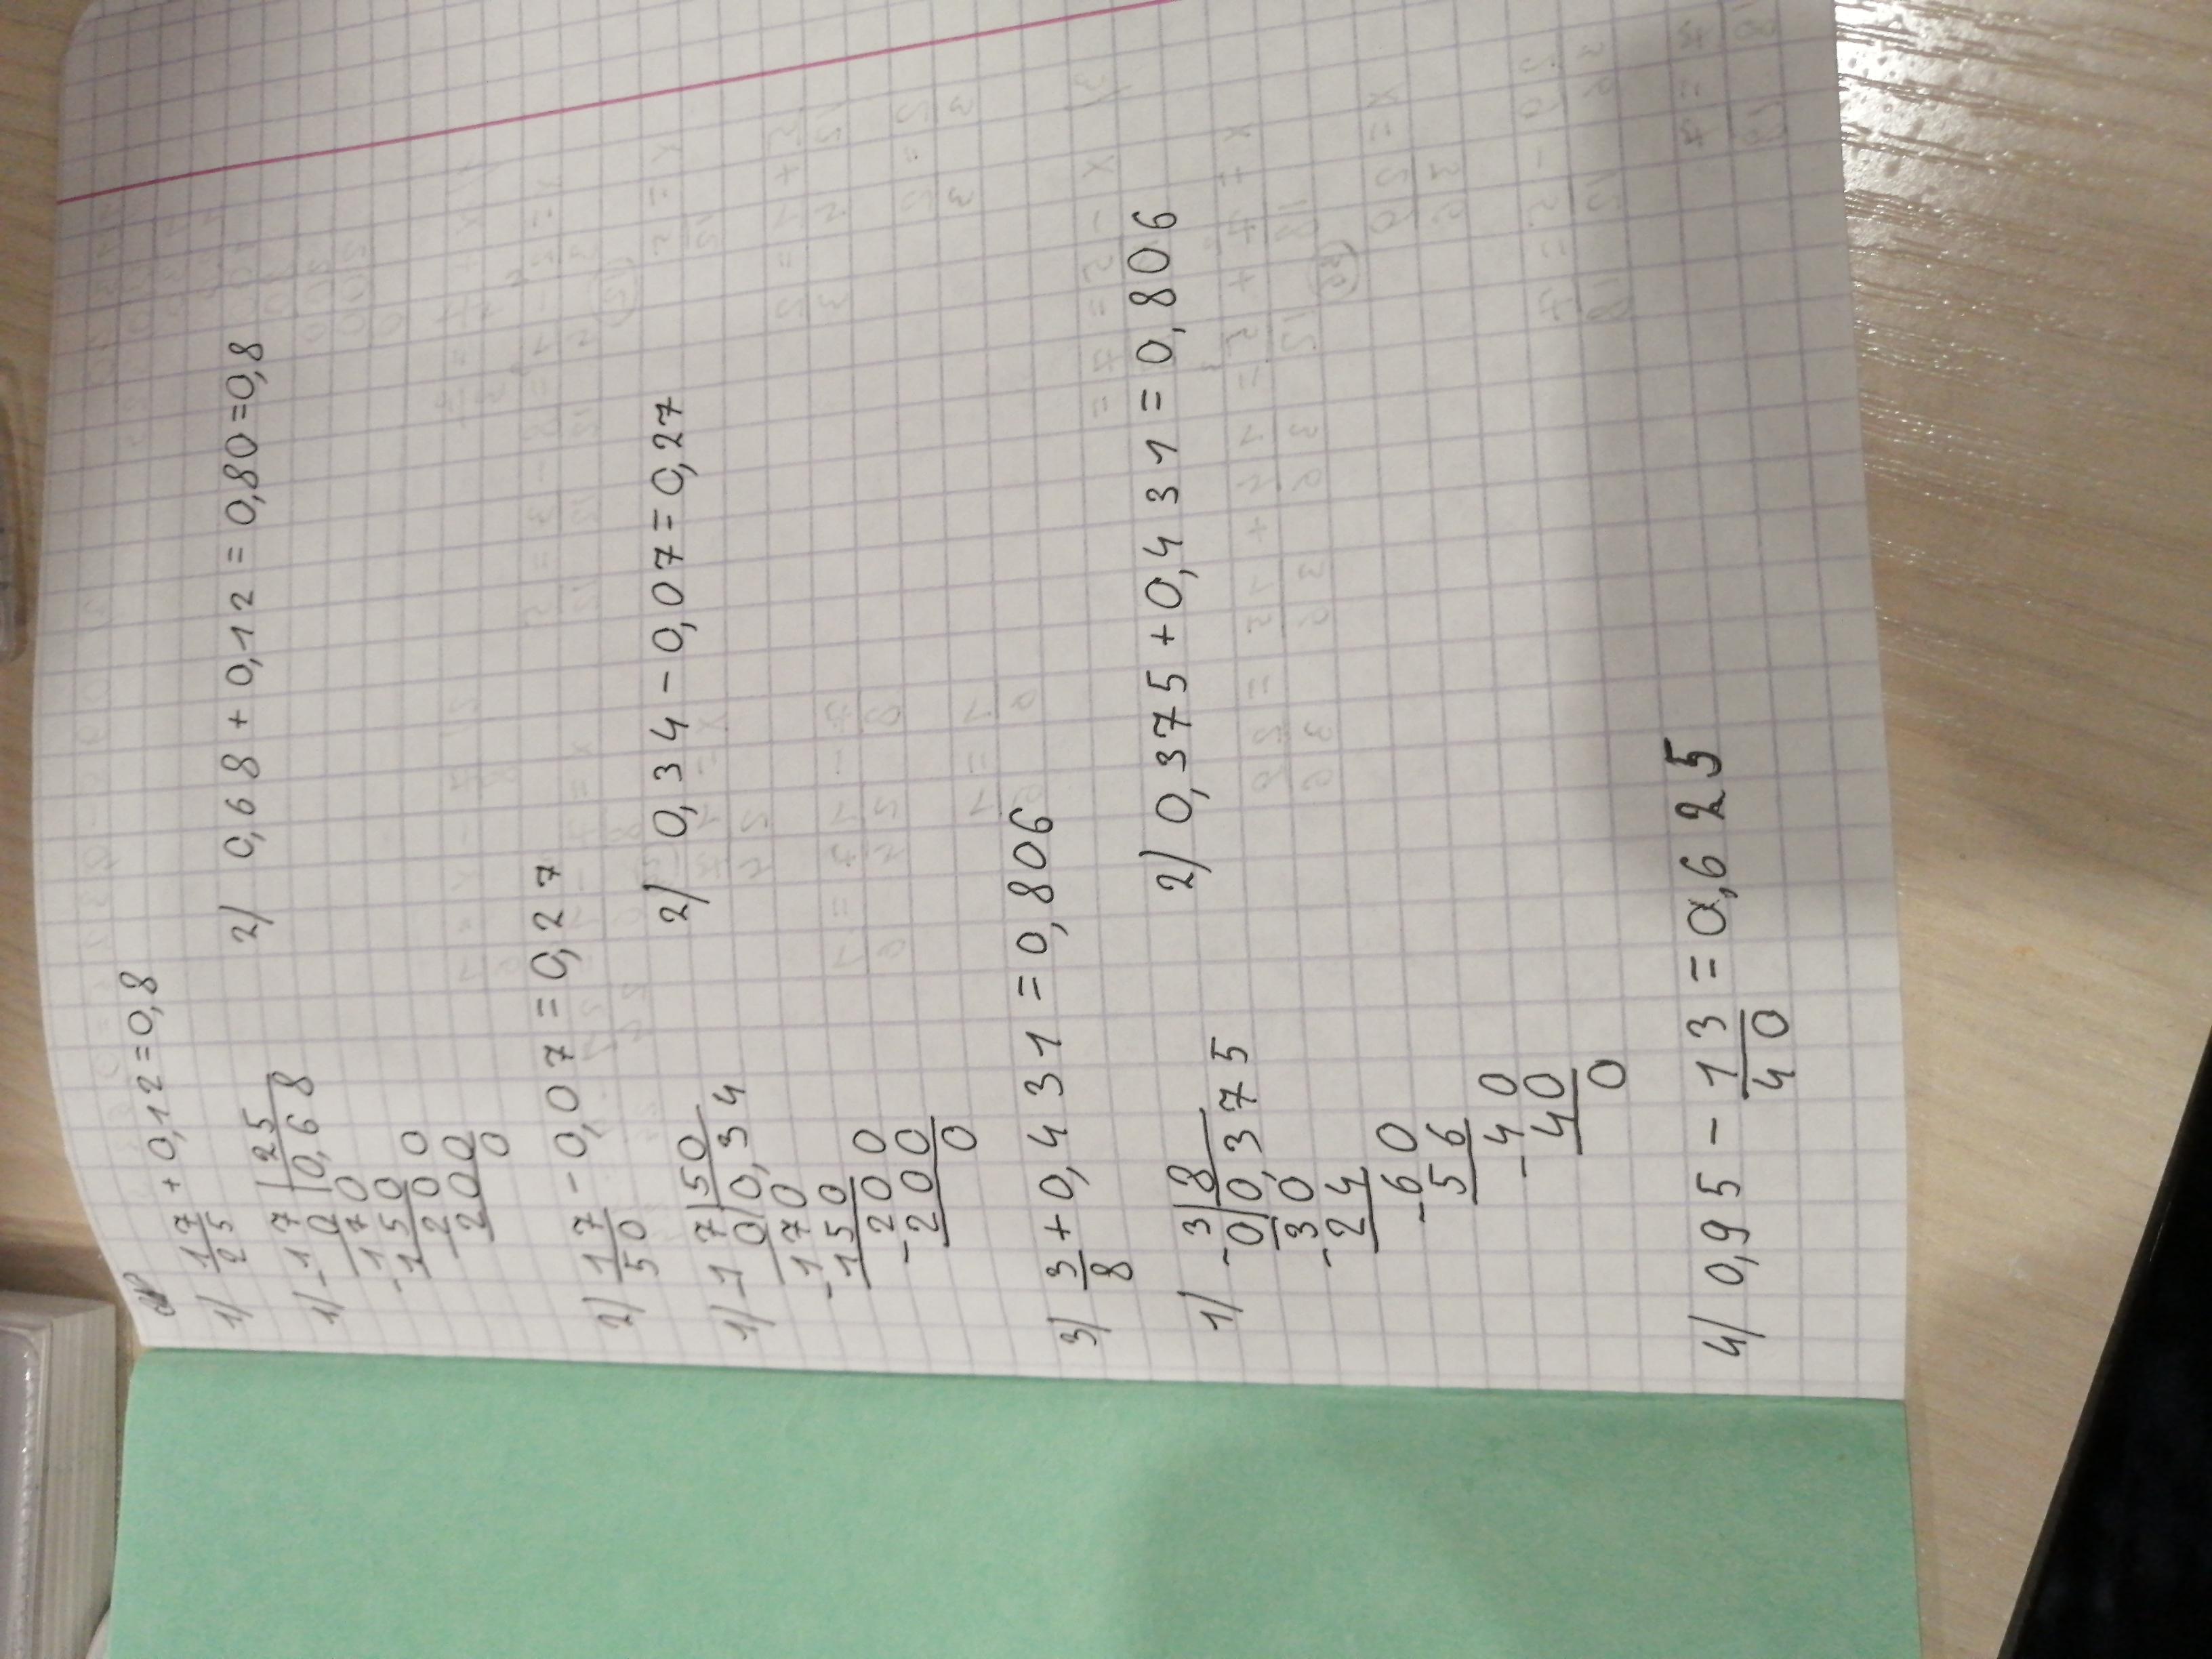 1) 17/25 + 0,12 = 0,8
1) -17 | 25 2) 0,68 + 0,12 = 0,80 = 0,8
0 | 0,68
-170
150
-200
200
0
2) 17/50 - 0,07 = 0,27
1) -17 | 50 2) 0,34 - 0,07 = 0,27
0 | 0,34
-170
150
-200
200
0
3) 3/8 + 0,431 = 0,806
1) -3 | 8 2) 0,375 + 0,431 = 0,806
0 | 0,375
-30
24
-60
56
-40
40
0
4) 0,95 - 13/40 = 0,625